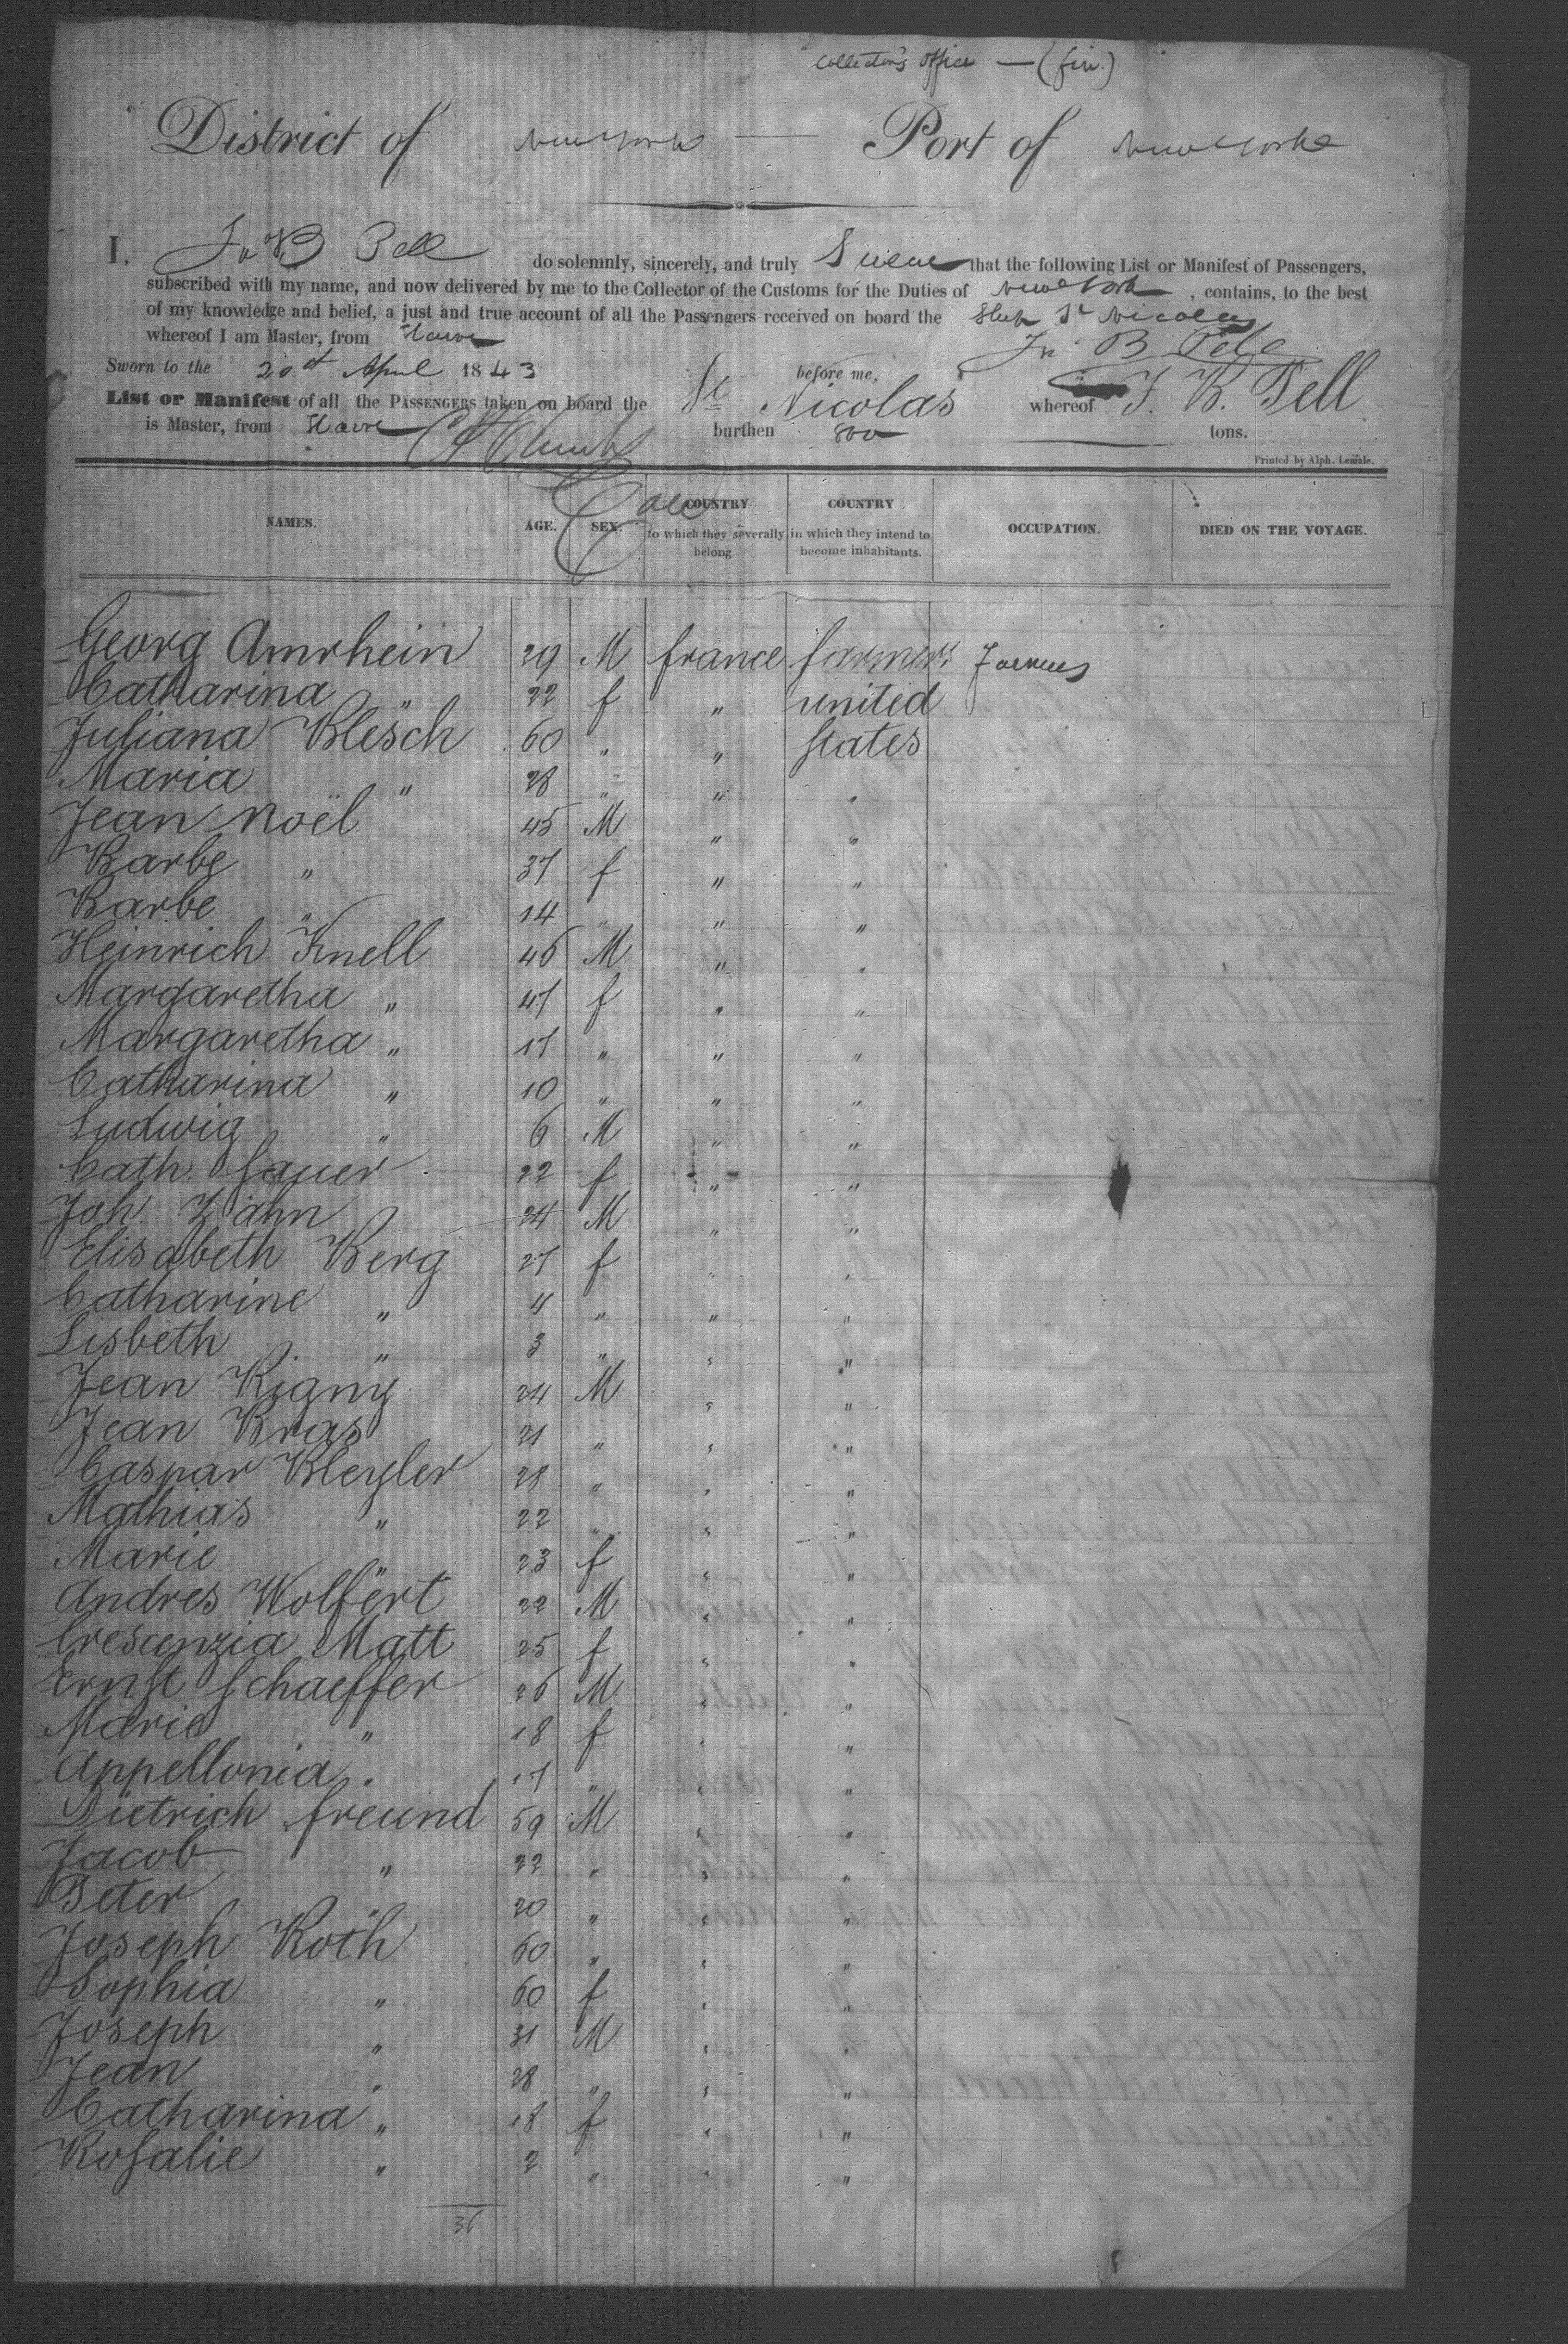 Collector's office — (fin.)
District of New York — Port of New York
I, Jn° B Pell do solemnly, sincerely, and truly Swear that the following List or Manifest of Passengers,
subscribed with my name, and now delivered by me to the Collector of the Customs for the Duties of New York, contains, to the best
of my knowledge and belief, a just and true account of all the Passengers received on board the Ship St Nicolas
whereof I am Master, from Havre
Jn° B Pell
Sworn to the 20th April 1843 before me,
List or Manifest of all the PASSENGERS taken on board the St Nicolas whereof J. B. Pell
is Master, from Havre burthen 800 tons.
Printed by Alph. Lemale.
NAMES. AGE. SEX. COUNTRY to which they severally belong COUNTRY in which they intend to become inhabitants. OCCUPATION. DIED ON THE VOYAGE.
Georg Amrhein 29 M france farmers Farmers
Catharina " 22 f " united
Juliana Klesch 60 " " states
Maria " 28 " " "
Jean Noël 45 M " "
Barbe " 37 f " "
Barbe " 14 " " "
Heinrich Knell 46 M " "
Margaretha " 47 f " "
Margaretha " 17 " " "
Catharina " 10 " " "
Ludwig " 6 M " "
Cath. Sauer 22 f " "
Joh. Zahn 24 M " "
Elisabeth Berg 27 f " "
Catharine " 4 " " "
Lisbeth " 3 " " "
Jean Rigny 24 M " "
Jean Bras 21 " " "
Caspar Kleyler 28 " " "
Mathias " 22 " " "
Marie " 23 f " "
Andres Wolfert 22 M " "
Crescenzia Matt 25 f " "
Ernst Schaeffer 26 M " "
Marie " 18 f " "
Appellonia " 17 " " "
Dietrich freund 59 M " "
Jacob " 22 " " "
Peter " 20 " " "
Joseph Roth 60 " " "
Sophia " 60 f " "
Joseph " 31 M " "
Jean " 28 " " "
Catharina " 18 f " "
Rosalie " 2 " " "
36